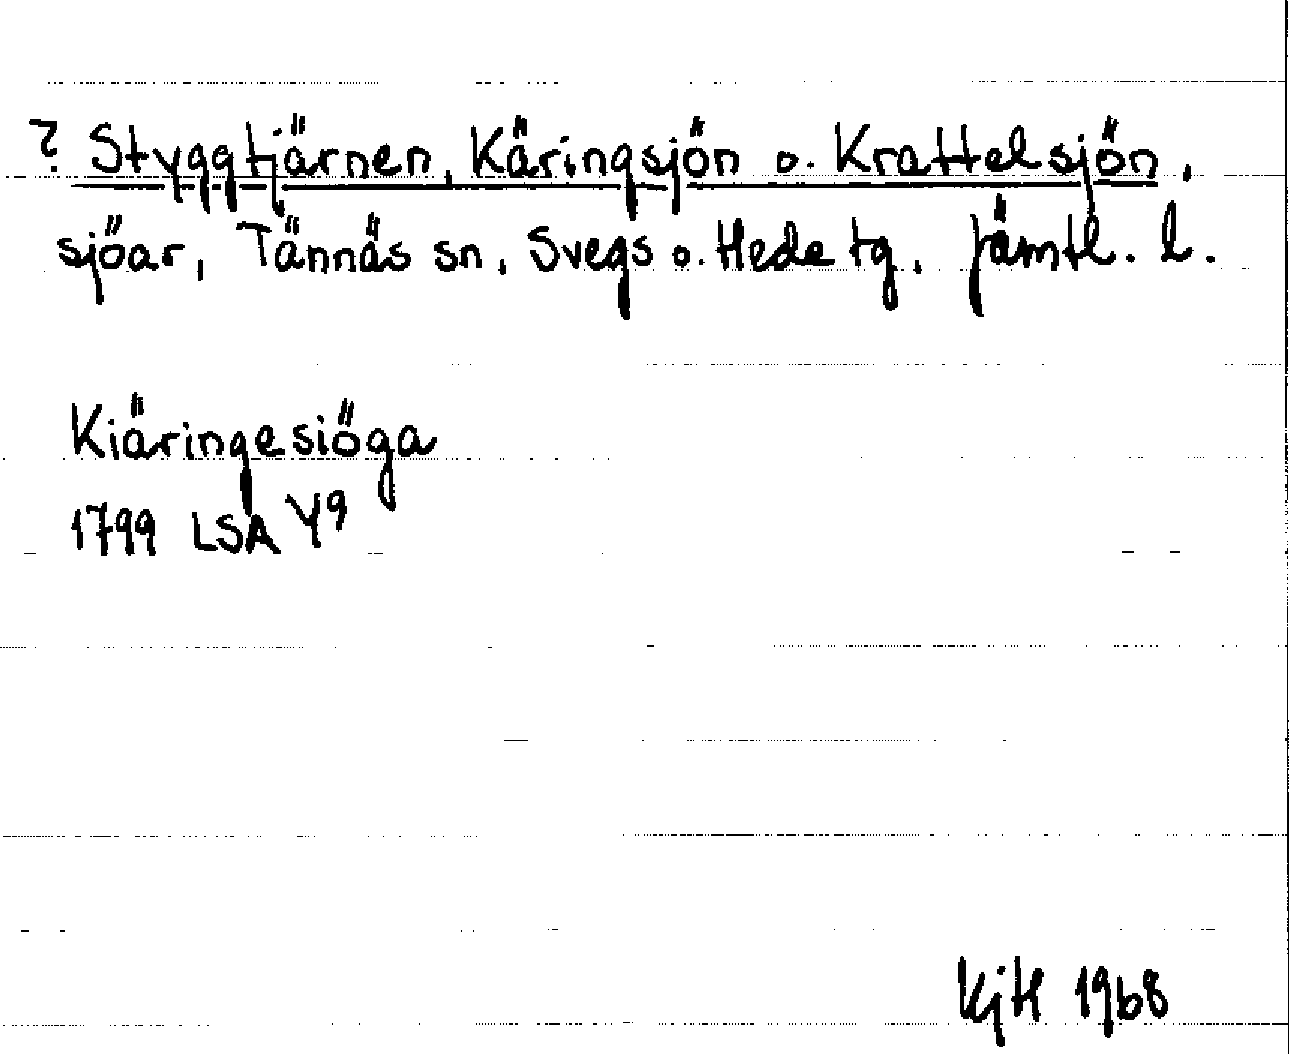 ? Styggtjärnen, Käringsjön o. Krattelsjön,
sjöar, Tännäs sn, Svegs o. Hede tg, Jämtl. l.
Kiäringesiöga
1799 LSA Y9
KjH 1968